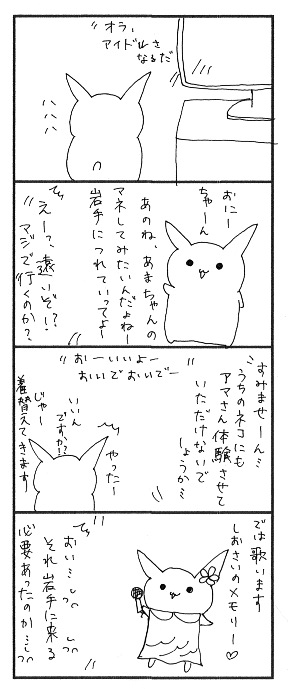 オラ、
アイドルさ
なるだ
おにー
ちゃーん
あのね、あまちゃんの
マネしてみたいんだよねー
岩手につれていってよー
えーっ、遠いぞ!?
マジで行くのか?
すみませーん…
うちのネコにも
アマさん体験させて
いただけないで
しょうか…
おーいいよー
おいでおいでー
やったー
いいん
ですか?
じゃー
着替えてきます
では歌います
しおさいのメモリー♡
おい…
それ岩手に来る
必要あったのか…